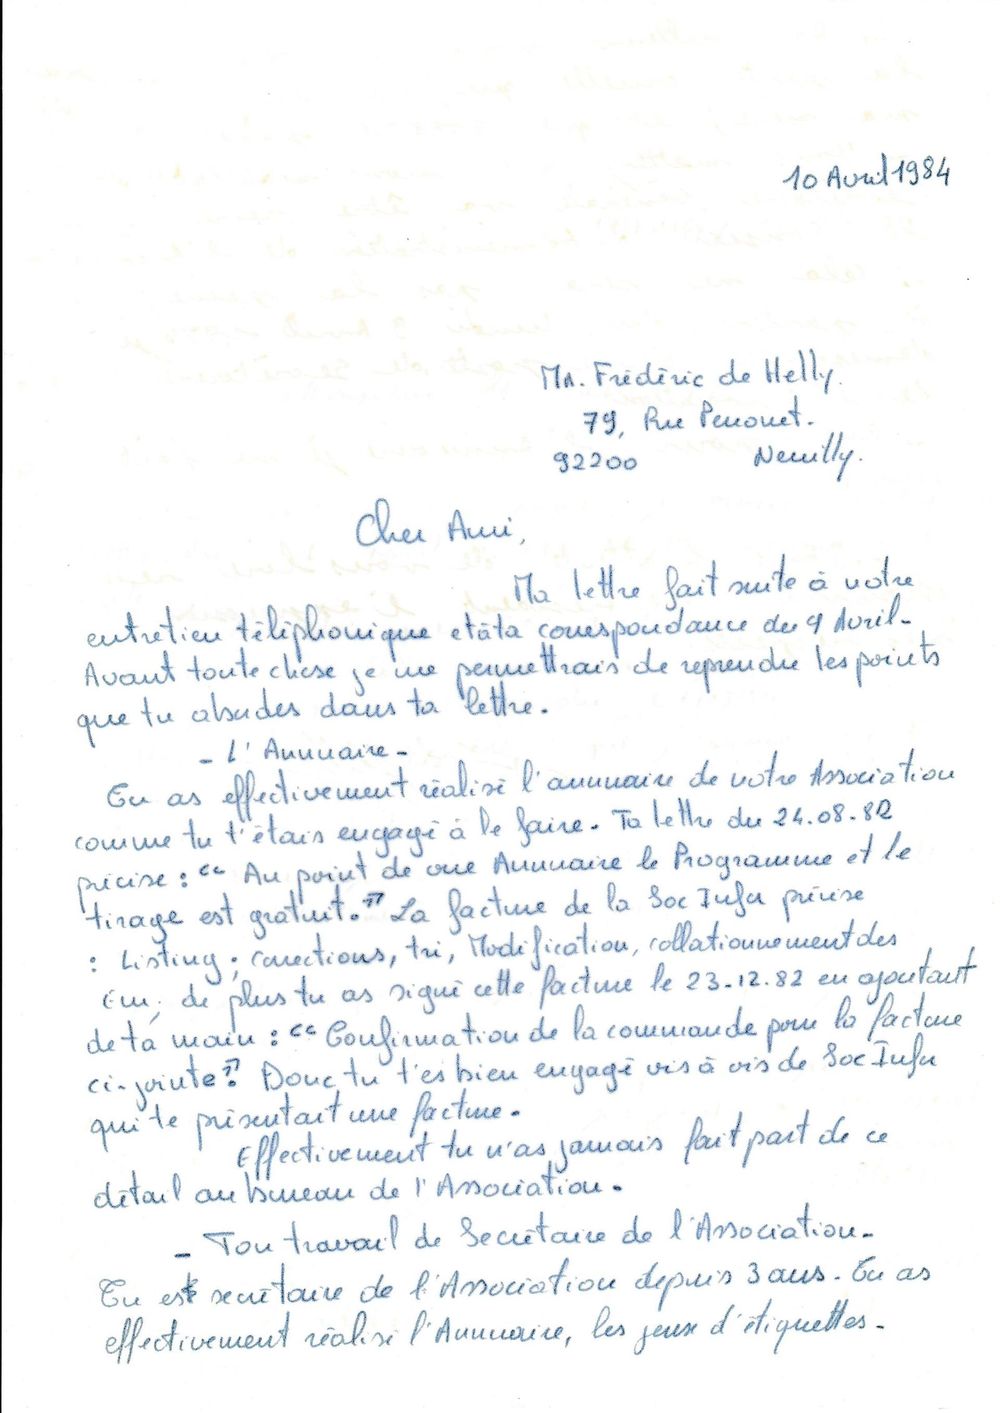 10 Avril 1984
Mr. Frédéric de Helly.
79, Rue Perronet.
92200 Neuilly.
Cher Ami,
Ma lettre fait suite à votre
entretien téléphonique et à ta correspondance du 9 Avril.
Avant toute chose je me permettrais de reprendre les points
que tu abordes dans ta lettre.
- L'Annuaire -
Tu as effectivement réalisé l'annuaire de notre Association
comme tu t'étais engagé à le faire. Ta lettre du 24.08.82
précise : "Au point de vue Annuaire le Programme et le
tirage est gratuit." La facture de la Soc Infor précise
: Listing, corrections, tri, Modification, collationnement des
Em, de plus tu as signé cette facture le 23.12.82 en ajoutant
de ta main : "Confirmation de la commande pour la facture
ci-jointe". Donc tu t'es bien engagé vis à vis de Soc Infor
qui te présentait une facture.
Effectivement tu n'as jamais fait part de ce
détail au bureau de l'Association.
- Ton travail de Secrétaire de l'Association -
Tu est secrétaire de l'Association depuis 3 ans. Tu as
effectivement réalisé l'Annuaire, les jeux d'étiquettes.